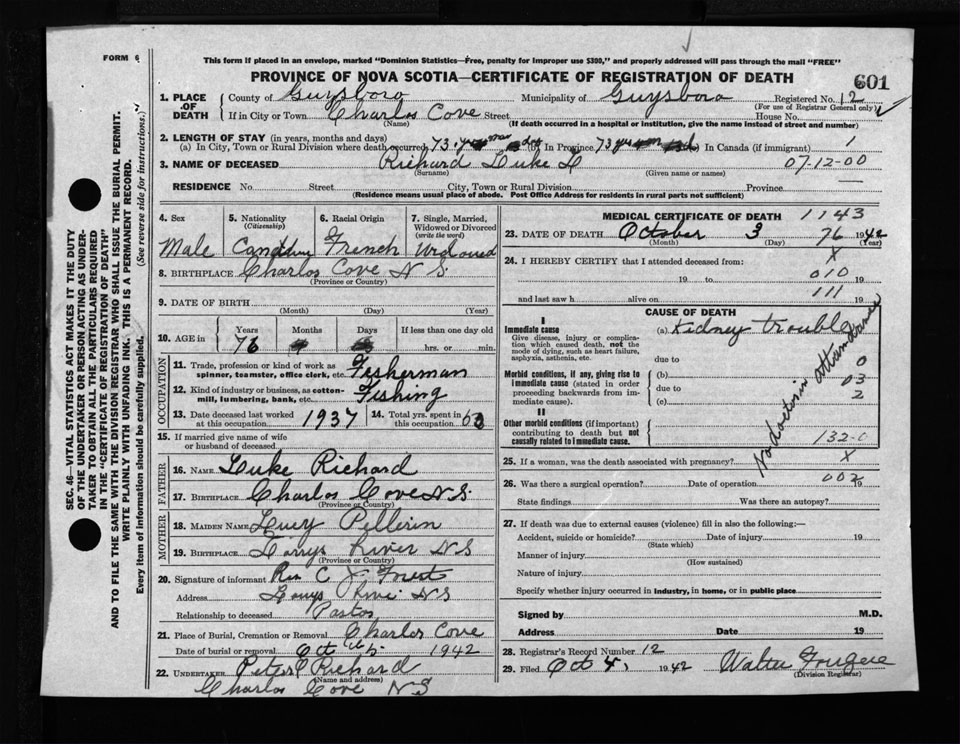 FORM 6
This form if placed in an envelope, marked "Dominion Statistics—Free, penalty for improper use $300," and properly addressed will pass through the mail "FREE"
PROVINCE OF NOVA SCOTIA—CERTIFICATE OF REGISTRATION OF DEATH
601
1. PLACE OF DEATH
County of Guysboro Municipality of Guysboro Registered No. 12
(For use of Registrar General only)
If in City or Town Charlos Cove Street House No.
(Name) (If death occurred in a hospital or institution, give the name instead of street and number)
2. LENGTH OF STAY (in years, months and days)
(a) In City, Town or Rural Division where death occurred 73 (b) In Province 73 (c) In Canada (if immigrant) 1
3. NAME OF DECEASED Richard Luke L 07-12-00
(Surname) (Given name or names)
RESIDENCE No. Street City, Town or Rural Division Province
(Residence means usual place of abode. Post Office Address for residents in rural parts not sufficient)
4. Sex 5. Nationality (Citizenship) 6. Racial Origin 7. Single, Married, Widowed or Divorced (write the word)
Male French
8. BIRTHPLACE Charlos Cove N S
(Province or Country)
9. DATE OF BIRTH
(Month) (Day) (Year)
10. AGE in Years Months Days If less than one day old
76 hrs. or min.
OCCUPATION
11. Trade, profession or kind of work as spinner, teamster, office clerk, etc. Fisherman
12. Kind of industry or business, as cotton-mill, lumbering, bank, etc. Fishing
13. Date deceased last worked at this occupation 1937 14. Total yrs. spent in this occupation
15. If married give name of wife or husband of deceased
FATHER
16. NAME Luke Richard
17. BIRTHPLACE Charlos Cove N S
(Province or Country)
MOTHER
18. MAIDEN NAME Lucy Pellerin
19. BIRTHPLACE Larrys River N S
(Province or Country)
20. Signature of informant Rev C J Forest
Address Larrys River N S
Relationship to deceased Pastor
21. Place of Burial, Cremation or Removal Charlos Cove
Date of burial or removal Oct 5 1942
22. UNDERTAKER Peter Richard
(Name and address)
Charlos Cove N S
MEDICAL CERTIFICATE OF DEATH 1143
23. DATE OF DEATH October 3 76 1942
(Month) (Day) (Year)
24. I HEREBY CERTIFY that I attended deceased from: x
19 to 010 19
and last saw h alive on 111 19
CAUSE OF DEATH
I
Immediate cause (a) Kidney trouble
Give disease, injury or complication which caused death, not the mode of dying, such as heart failure, asphyxia, asthenia, etc.
due to 0
Morbid conditions, if any, giving rise to immediate cause (stated in order proceeding backwards from immediate cause).
(b) 03
due to 2
(c)
II
Other morbid conditions (if important) contributing to death but not causally related to immediate cause.
132-0
No doctor in attendance
25. If a woman, was the death associated with pregnancy? x
26. Was there a surgical operation? Date of operation 002 19
State findings Was there an autopsy?
27. If death was due to external causes (violence) fill in also the following:—
Accident, suicide or homicide? Date of injury 19
(State which)
Manner of injury
(How sustained)
Nature of injury
Specify whether injury occurred in industry, in home, or in public place
Signed by M.D.
Address Date 19
28. Registrar's Record Number 12
29. Filed Oct 4, 1942 Walter Fougere
(Division Registrar)
SEC. 46—VITAL STATISTICS ACT MAKES IT THE DUTY
OF THE UNDERTAKER OR PERSON ACTING AS UNDER-
TAKER TO OBTAIN ALL THE PARTICULARS REQUIRED
IN THE "CERTIFICATE OF REGISTRATION OF DEATH"
AND TO FILE THE SAME WITH THE DIVISION REGISTRAR WHO SHALL ISSUE THE BURIAL PERMIT.
WRITE PLAINLY WITH UNFADING INK. THIS IS A PERMANENT RECORD.
Every item of information should be carefully supplied. (See reverse side for instructions.)